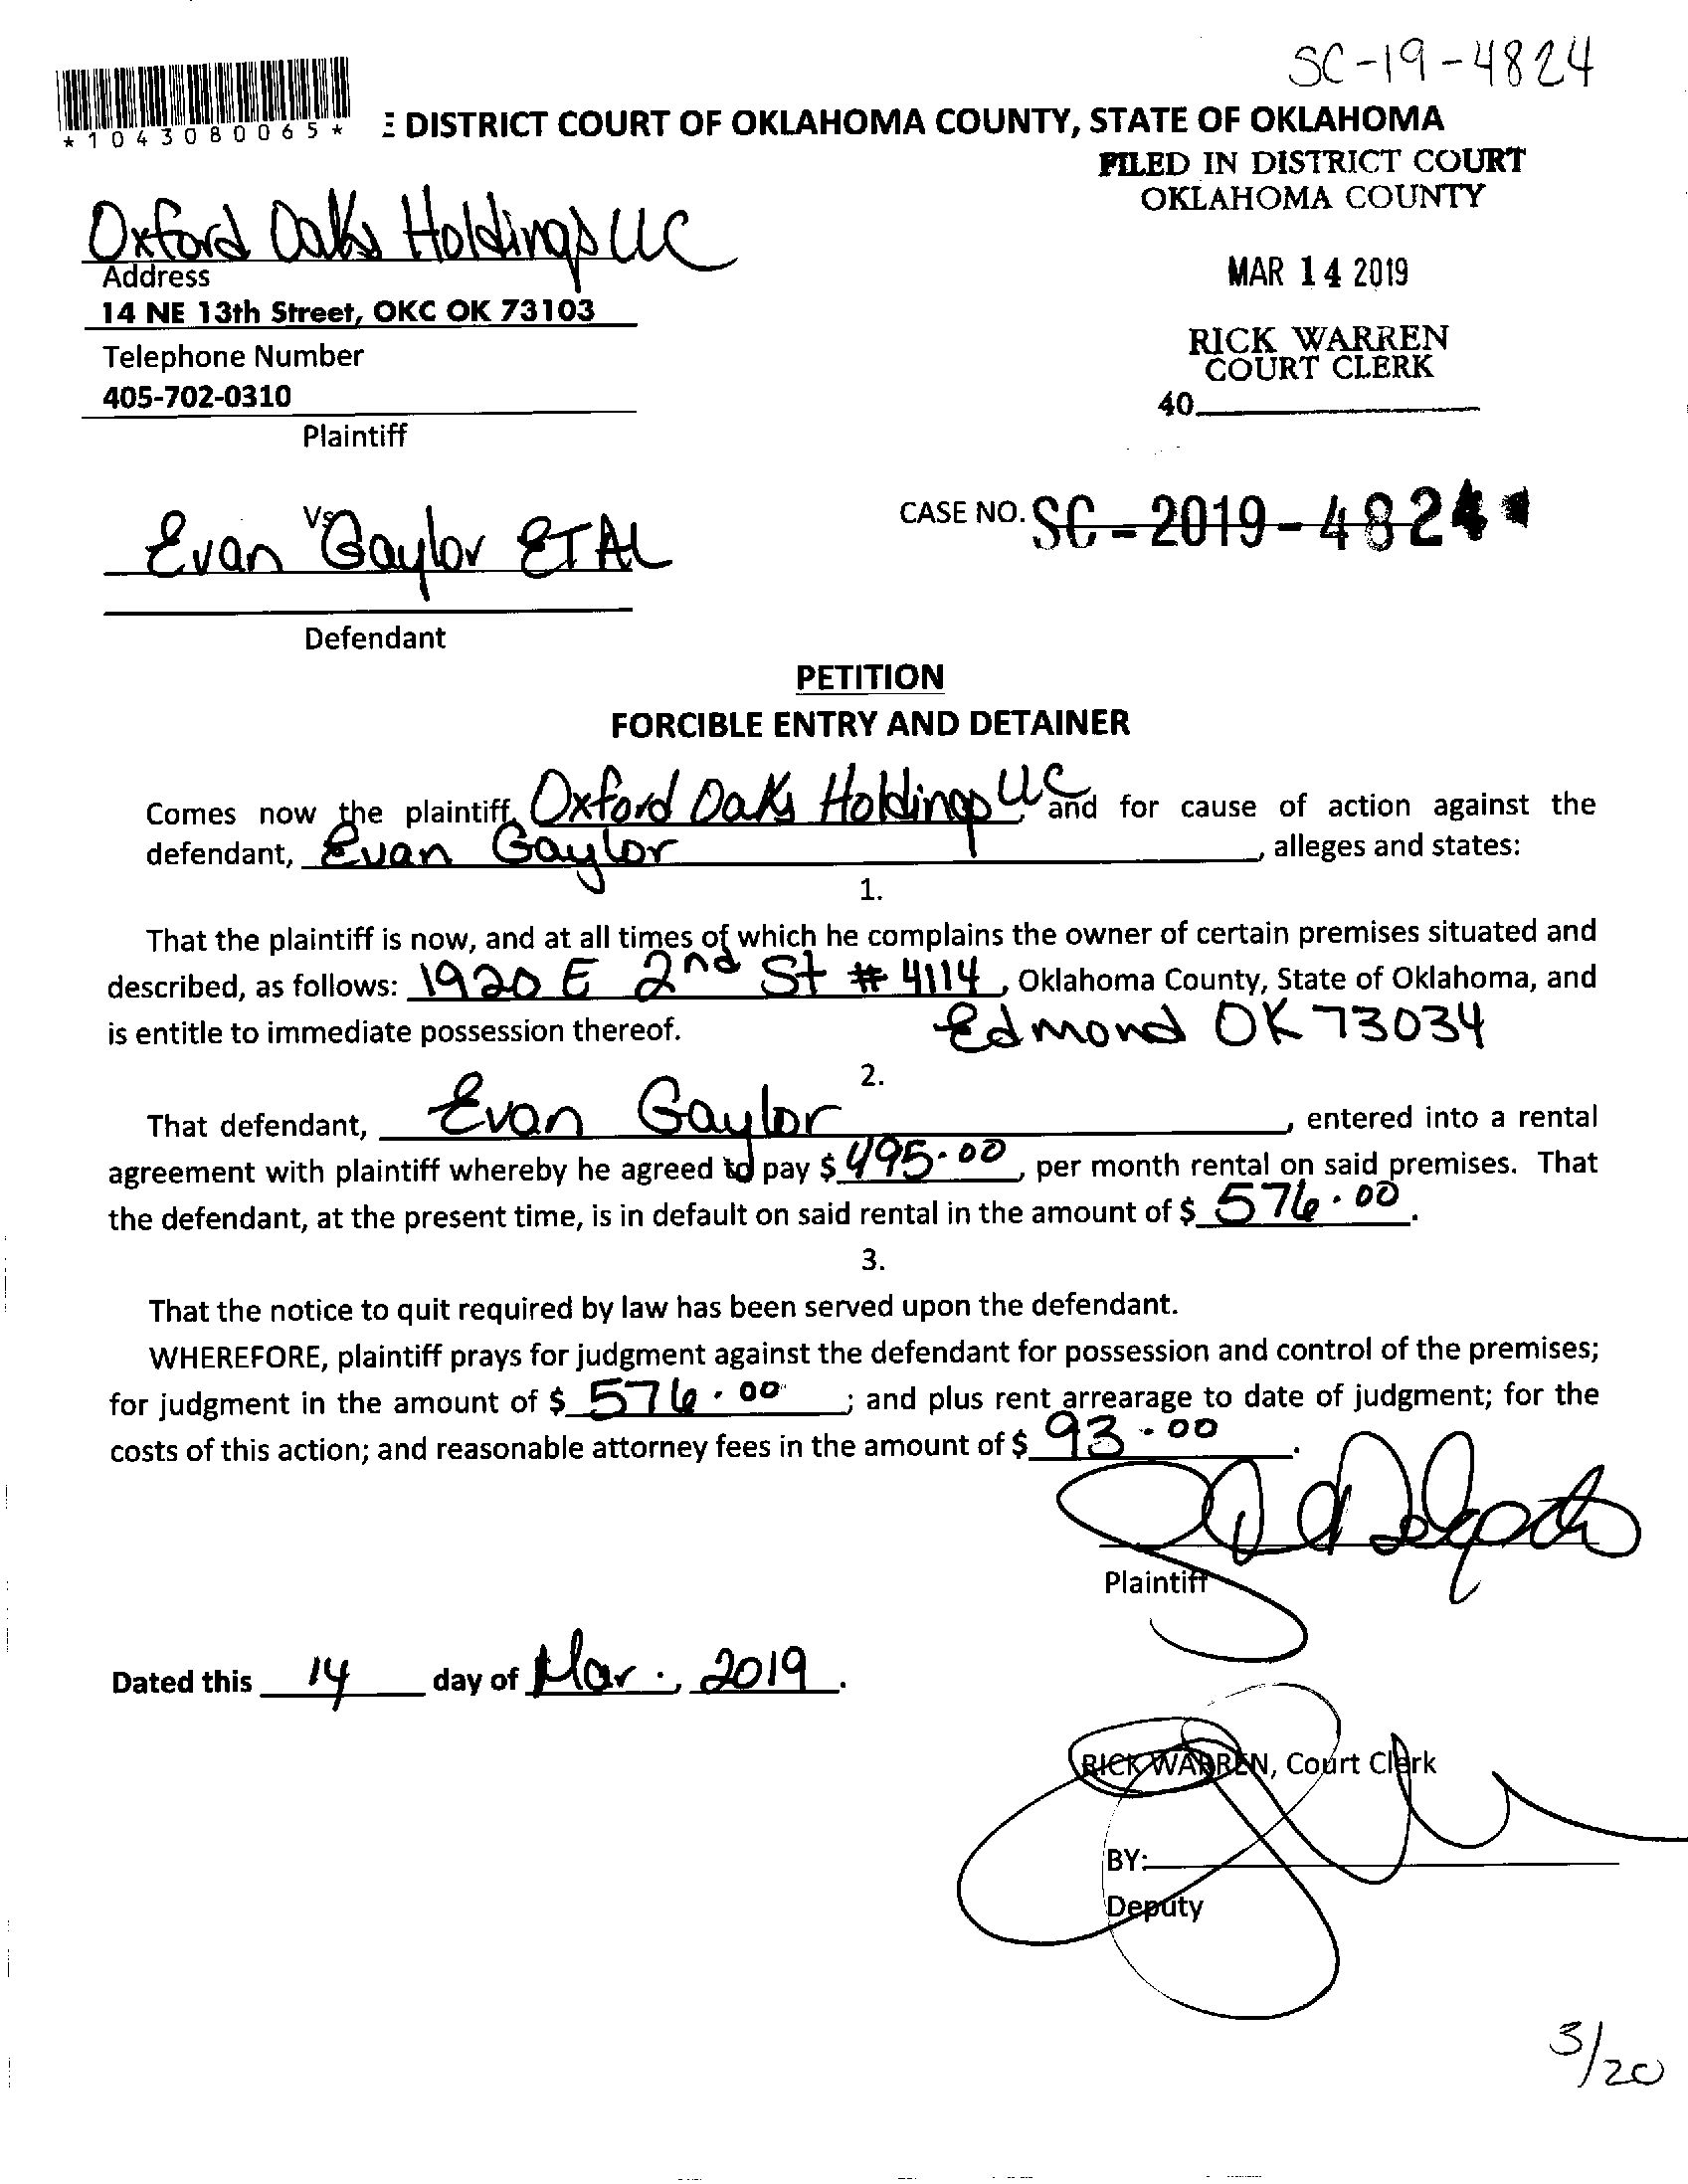 SC-19-4824
*1043080065*
E DISTRICT COURT OF OKLAHOMA COUNTY, STATE OF OKLAHOMA
FILED IN DISTRICT COURT
OKLAHOMA COUNTY
Oxford Oaks Holdings LLC
Address
MAR 14 2019
14 NE 13th Street, OKC OK 73103
RICK WARREN
COURT CLERK
Telephone Number
405-702-0310
40
Plaintiff
Vs
CASE NO. SC-2019-4824
Evan Gaylor ET AL
Defendant
PETITION
FORCIBLE ENTRY AND DETAINER
Comes now the plaintiff, Oxford Oaks Holdings LLC, and for cause of action against the
defendant, Evan Gaylor, alleges and states:
1.
That the plaintiff is now, and at all times of which he complains the owner of certain premises situated and
described, as follows: 1920 E 2nd St # 4114, Oklahoma County, State of Oklahoma, and
is entitle to immediate possession thereof. Edmond OK 73034
2.
That defendant, Evan Gaylor, entered into a rental
agreement with plaintiff whereby he agreed to pay $ 495.00, per month rental on said premises. That
the defendant, at the present time, is in default on said rental in the amount of $ 576.00.
3.
That the notice to quit required by law has been served upon the defendant.
WHEREFORE, plaintiff prays for judgment against the defendant for possession and control of the premises;
for judgment in the amount of $ 576.00; and plus rent arrearage to date of judgment; for the
costs of this action; and reasonable attorney fees in the amount of $ 93.00.
Plaintiff
Dated this 14 day of Mar., 2019.
RICK WARREN, Court Clerk
BY:
Deputy
3/20